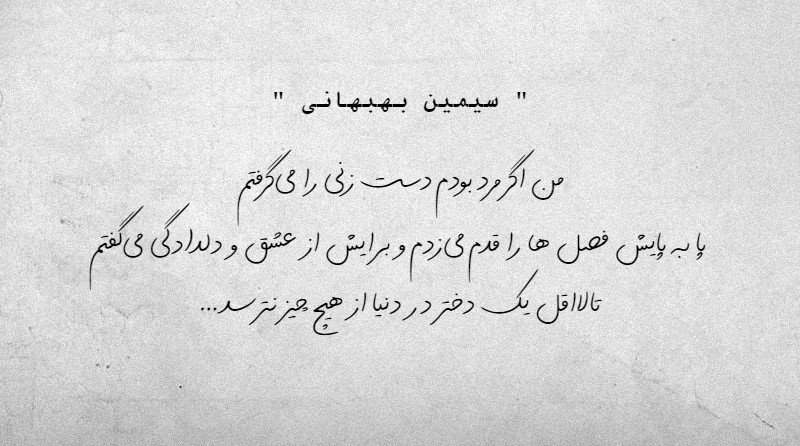 " سیمین بهبهانی "
من اگر مرد بودم دست زنی را می‌گرفتم
پا به پایش فصل ها را قدم می‌زدم و برایش از عشق و دلدادگی می‌گفتم
تالااقل یک دختر در دنیا از هیچ چیز نترسد...